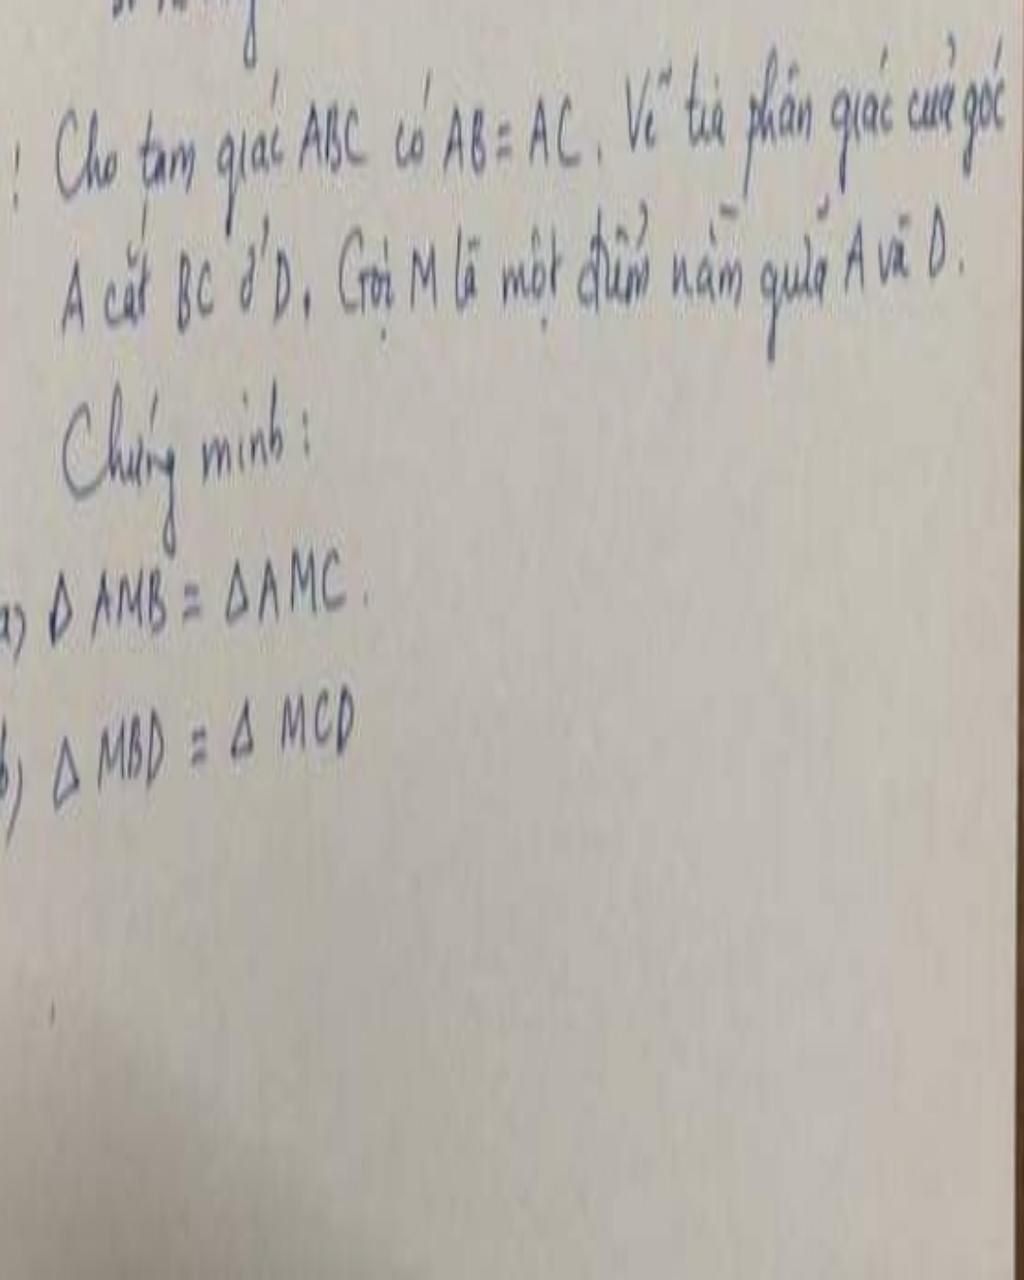 : Cho tam giác ABC có AB = AC. Vẽ tia phân giác của góc
A cắt BC ở D. Gọi M là một điểm nằm giữa A và D.
Chứng minh:
a) Δ AMB = Δ AMC.
b) Δ MBD = Δ MCD